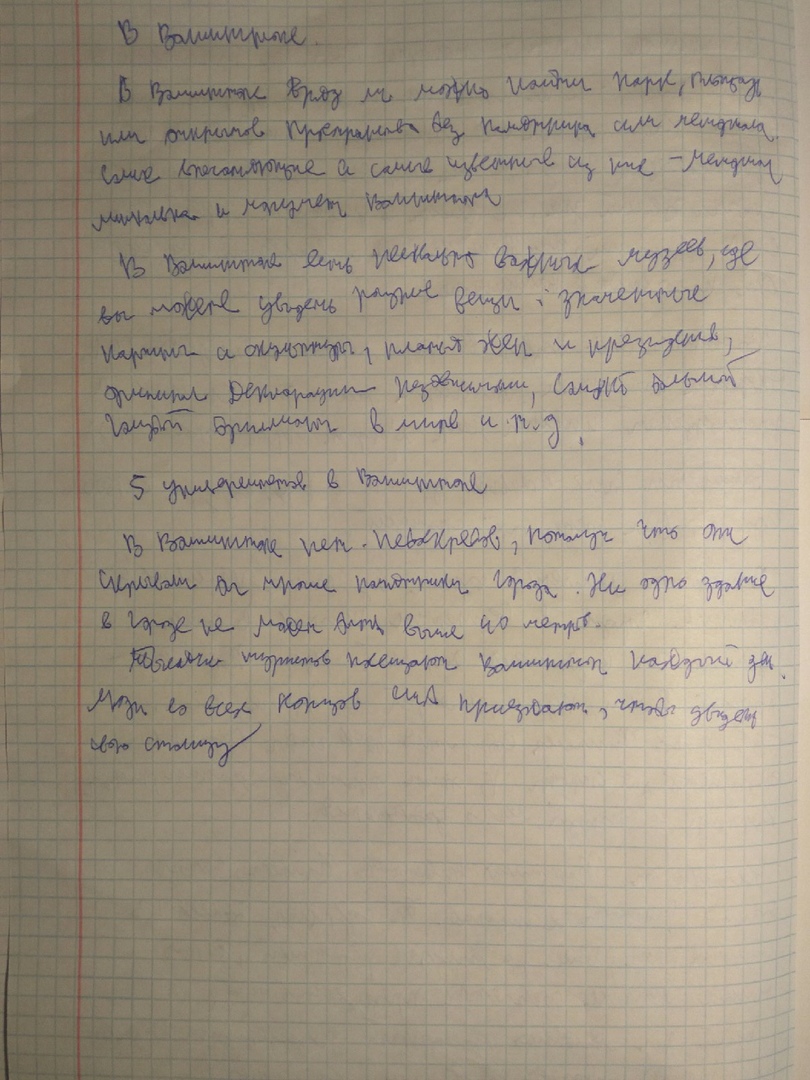 В Вашингтоне.
В Вашингтоне вряд ли можно найти парк, площадь
или открытое пространство без памятника или мемориала.
Самые впечатляющие и самые известные из них – мемориал
Линкольна и монумент Вашингтона
В Вашингтоне есть несколько важных музеев, где
вы можете увидеть разные вещи: знаменитые
картины и скульптуры, платья жен и президентов,
оригинал Декларации Независимости, самый большой
голубой бриллиант в мире и т.д.
5 университетов в Вашингтоне
В Вашингтоне нет небоскребов, потому что они
скрывали бы прочие памятники города. Ни одно здание
в городе не может быть выше 40 метров.
Тысячи туристов посещают Вашингтон каждый день.
Люди со всех концов США приезжают, чтобы увидеть
свою столицу